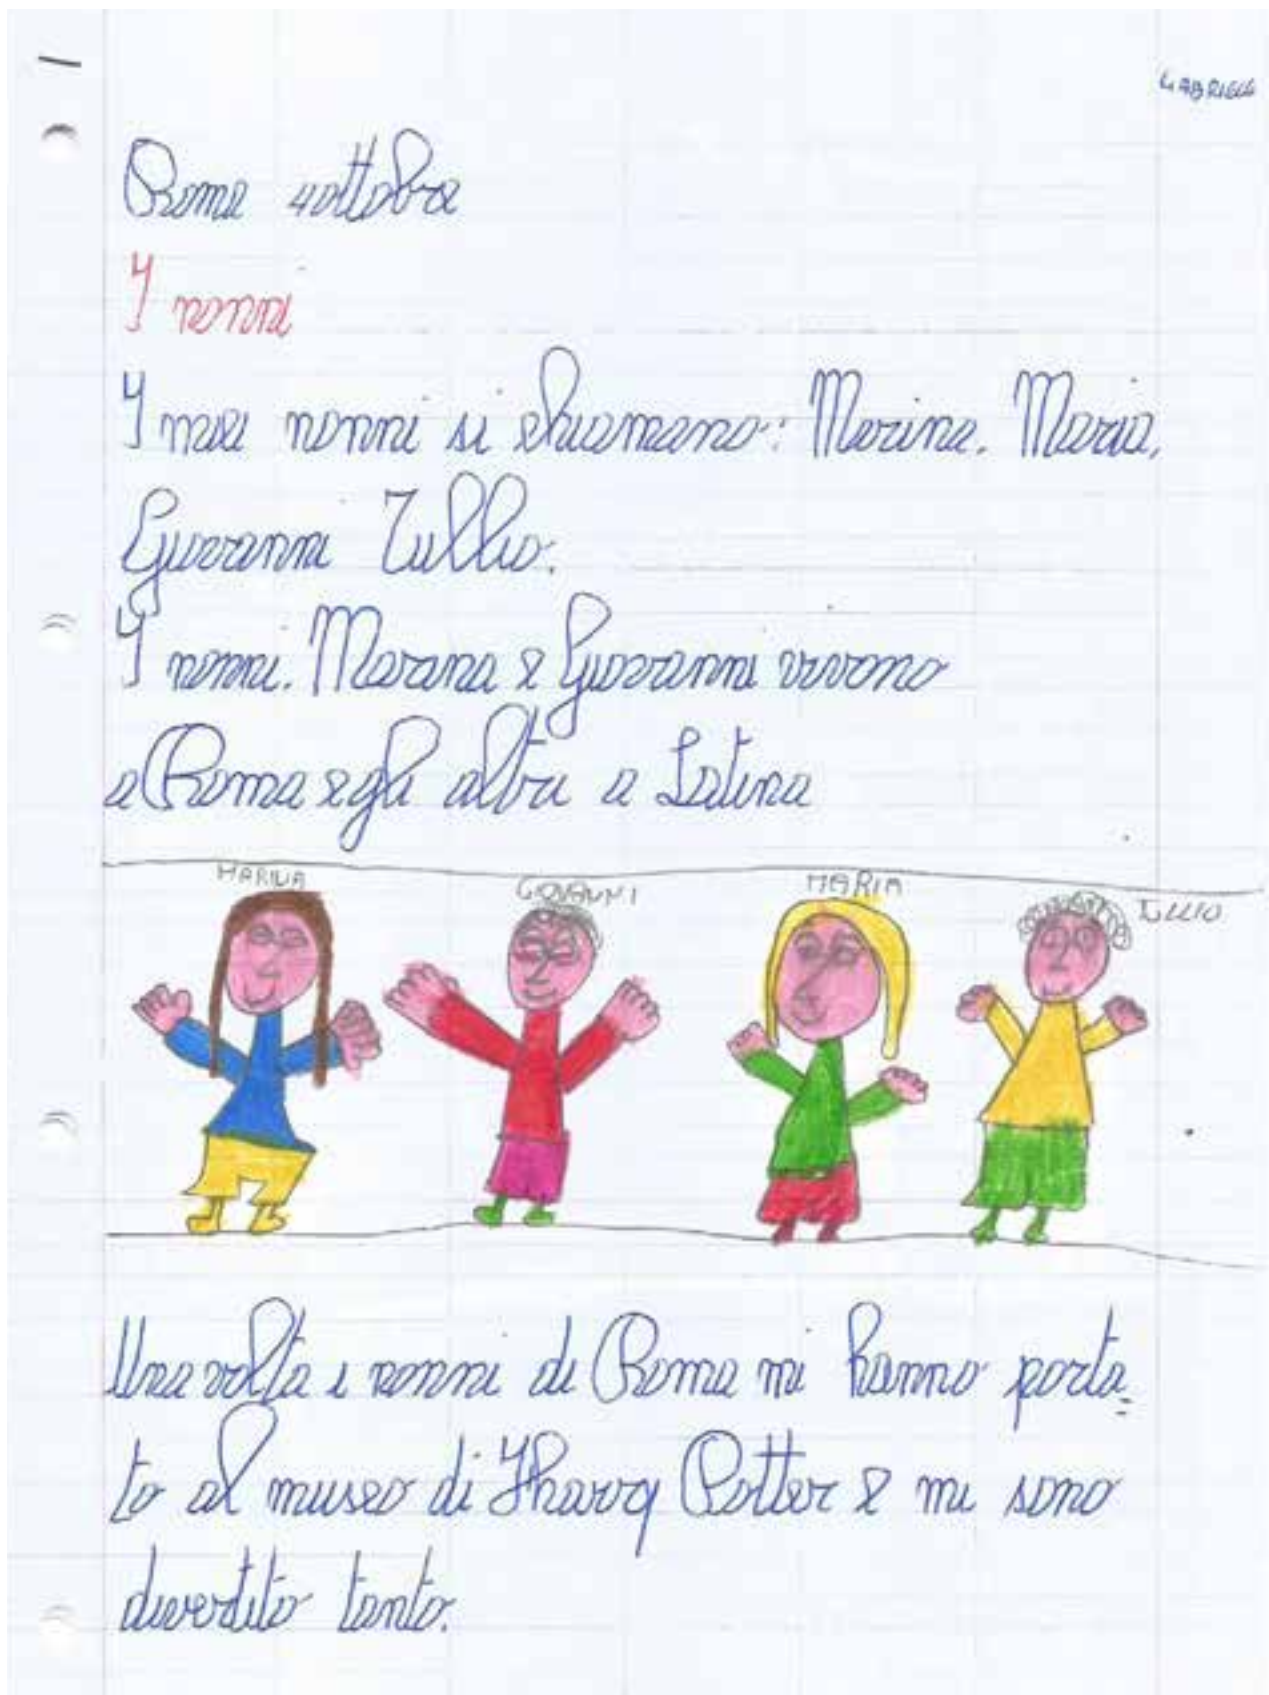 GABRIELE
Roma 4 ottobre
I nonni
I miei nonni si chiamano: Marina, Maria,
Giovanni Tullio.
I nonni. Marina e Giovanni vivono
a Roma e gli altri a Latina
MARINA
GIOVANNI
MARIA
TULLIO
Una volta i nonni di Roma mi hanno porta=
to al museo di Tharry Potter e mi sono
divertito tanto.